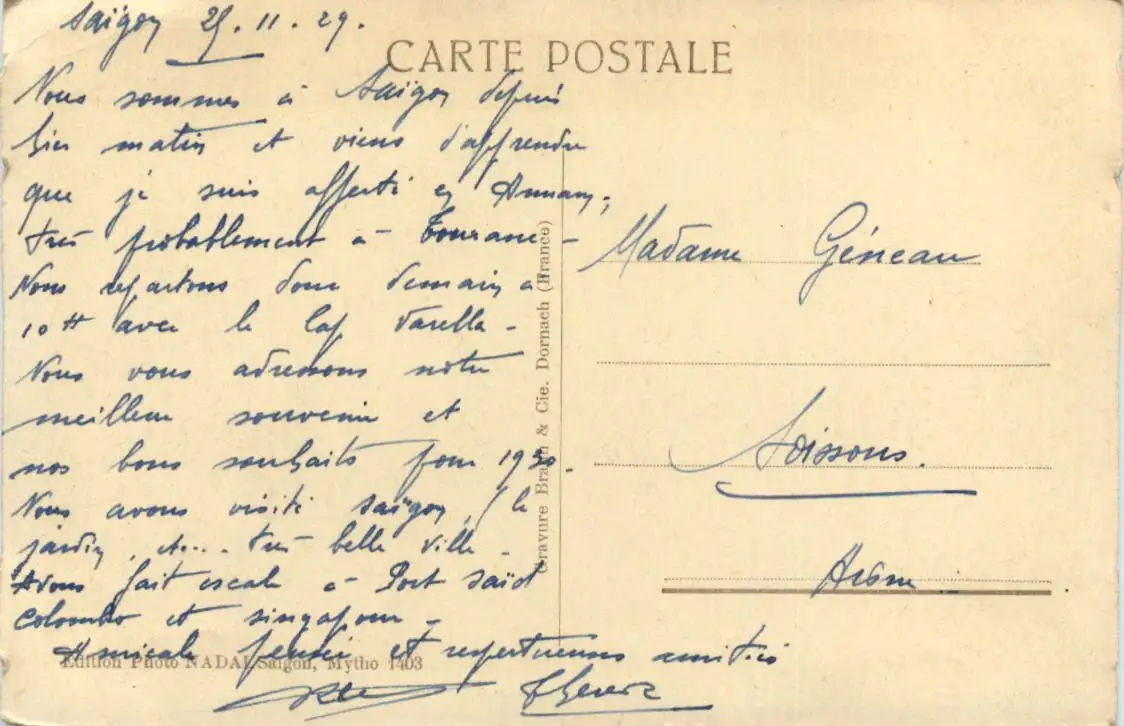 Saïgon 25.11.29.
CARTE POSTALE
Nous sommes à Saïgon depuis
hier matin et viens d'apprendre
que je suis affecté en Annam,
très probablement à Tourane -
Nous repartons donc demain à
10 H avec le Cap Varella -
Nous vous adressons notre
meilleur souvenir et
nos bons souhaits pour 1930.
Nous avons visité Saïgon, le
jardin, etc... très belle ville -
Avons fait escale à Port Saïd
Colombo et Singapour -
Amicale pensée et respectueuses amitiés
Madame Géneau
Soissons.
Aisne
Gravure Braun & Cie. Dornach (France)
Edition Photo NADAL Saïgon, Mytho 1403